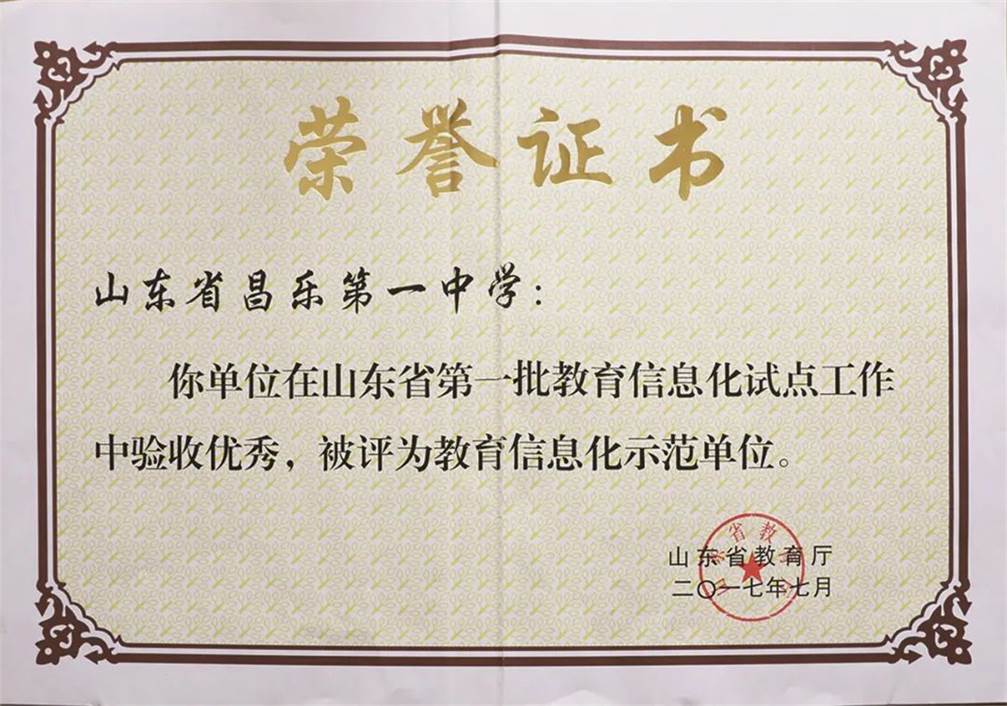 荣誉证书
山东省昌乐第一中学：
你单位在山东省第一批教育信息化试点工作
中验收优秀，被评为教育信息化示范单位。
山东省教育厅
二〇一七年七月